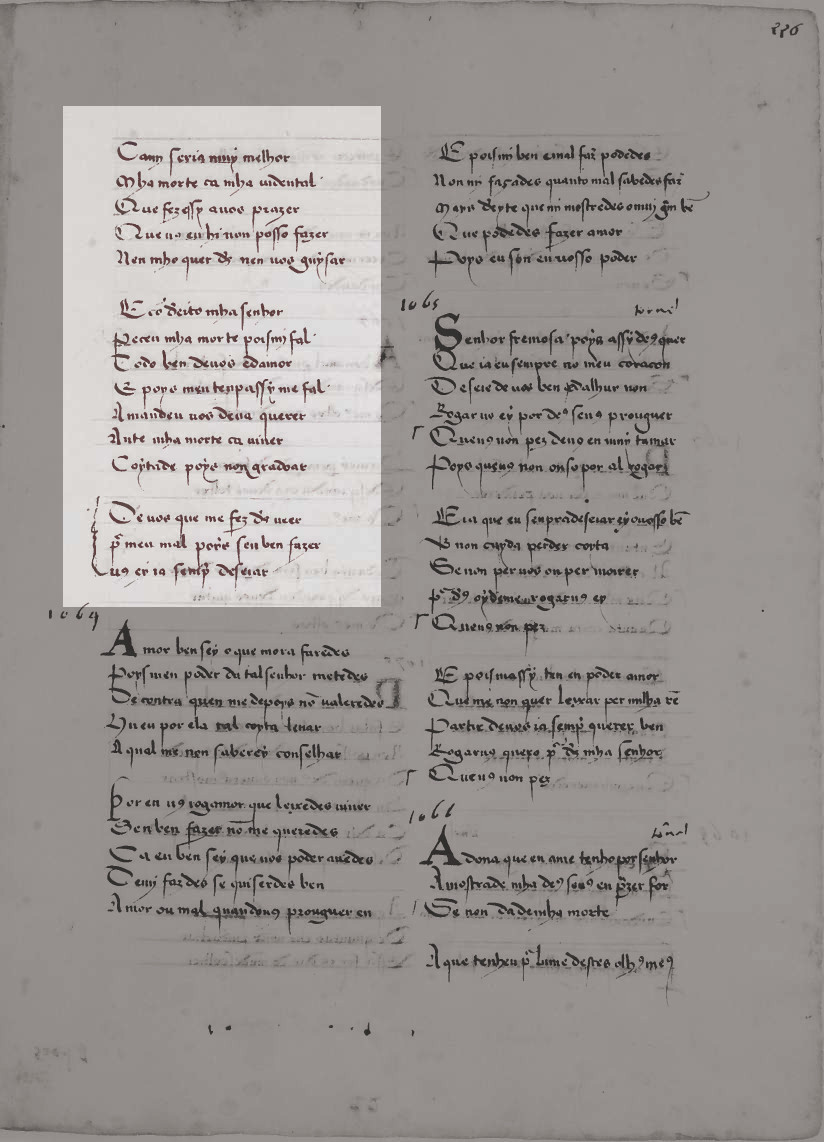 Camj seria muy melhor
Mha morte ca mha uidental
Que fezessy auos prazer
Que uo eu hi non posso fazer
Nen mho quer ds nen uos guysar
E co deito mha senhor
Receu mha morte poismi fal
Todo ben deuos edamor
E poys meu tenpassy me fal
Amandeu uos deuа querer
Ante mha morte ca uiuer
Coytade poys non gradoar
De uos que me fez ds ueer
p meu mal poys seu ben fazer
uus ey ia semp deseiar
1064
Amor ben sey o que mora faredes
Poys men poder da tal senhor metedes
De contra quen me depoys no ualeredes
Hu eu por ela tal coyta leuar
A qual me non saberey conselhar
Por en us rogamor que leixedes uiuer
Sen ben fazer no me queredes
Ca eu ben sey que uos poder auedes
Demi fazdes se quiserdes ben
Amor ou mal quandous prouguer en
226
E poismi ben e mal faz podedes
Non mi façades quanto mal sabedes faz
Mays deyte que mi mostredes o mui gm be
Que podedes fazer amor
Poys eu son eu uosso poder
1065
tornel
Senhor fremosa poys assy ds quer
Que ia eu sempre no meu coraçon
Deseie de uos ben e dalhur non
Rogar us ey por ds se us prouguer
Queus non pez deuo en muy tamar
Poys queus non ouso por al rogar
E ia que eu senpra deseiar ey o uosso be
E non cuyda perder coyta
Se non per uos ou per moirer
p ds oydeme rogarus ey
Queus non pez
E poismassy ten en poder amor
Que me non quer leixar per nilha re
Partir deuos ia semp querer ben
Rogarus quero p ds mha senhor
Queus non pez
1066
tornel
A dona que eu ame tenho por senhor
Amostrade mha ds seus en pzer for
Se non dademha morte
A que tenheu p lume destes olhs mes